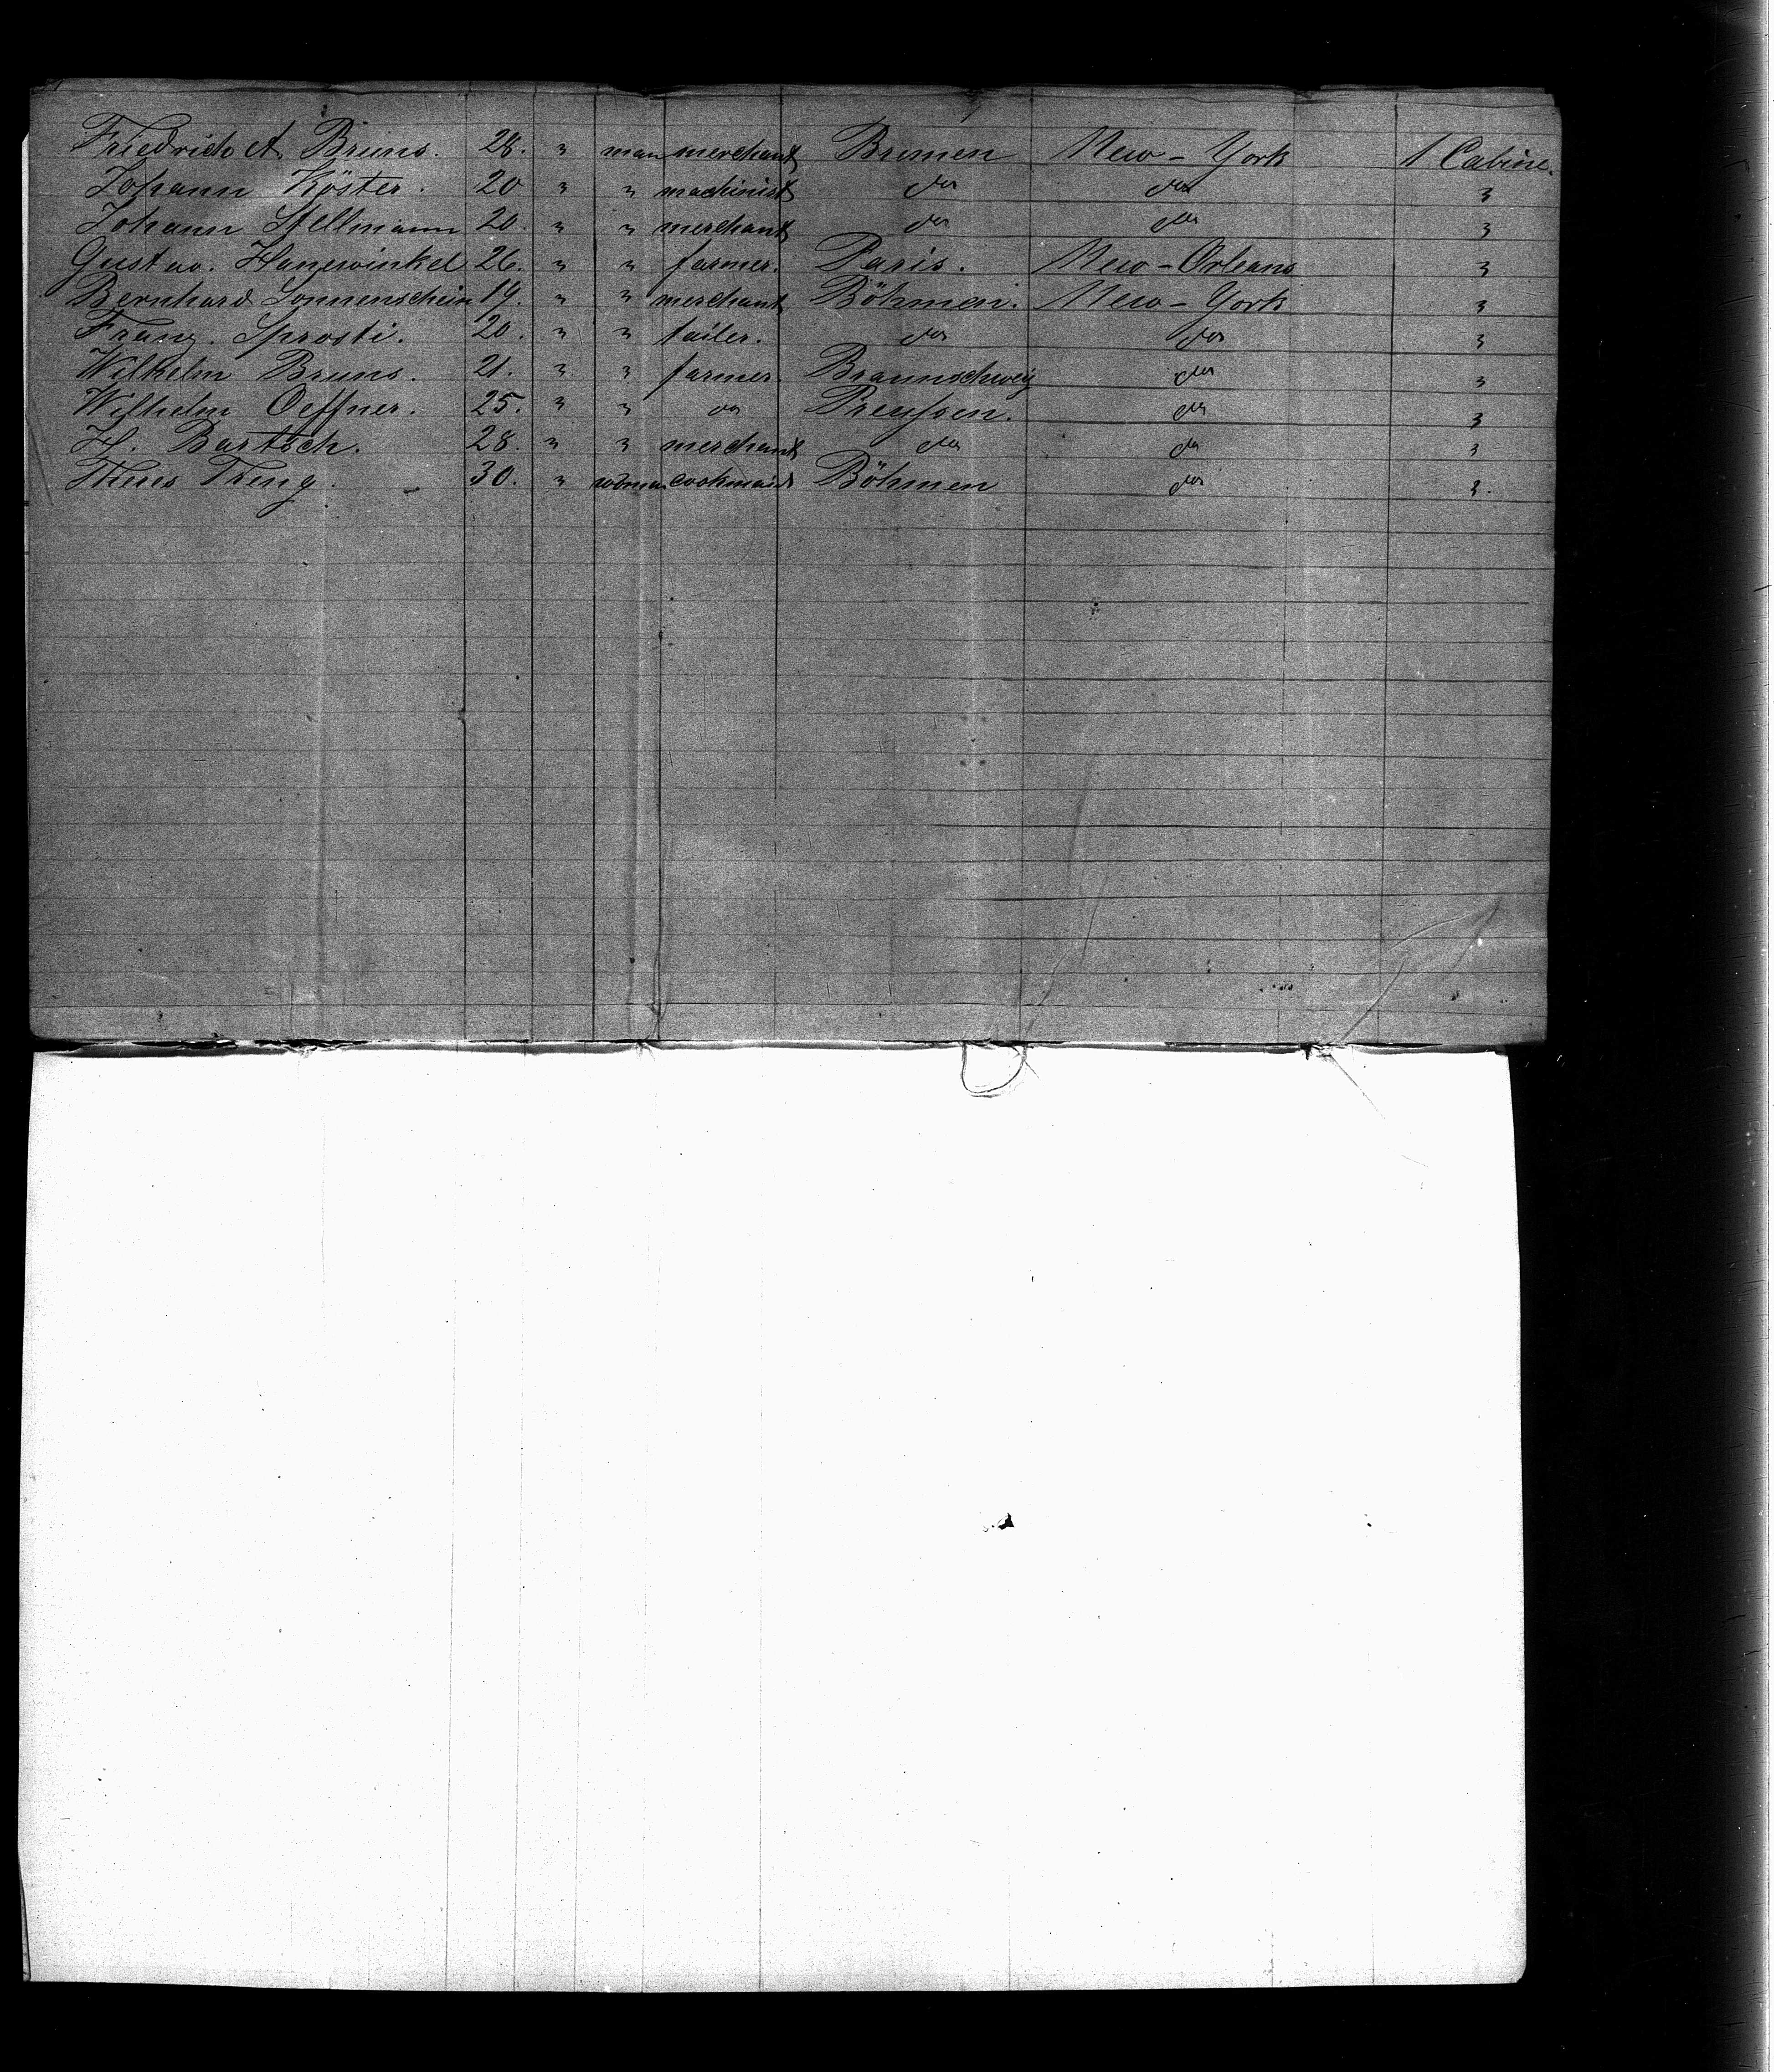 Friedrich A. Bruns. 28. " man merchant Bremen New-York 1 Cabine.
Johann Köster. 20 " " machinist do do "
Johann Stellmann 20. " " merchant do do "
Gustav. Hanewinkel 26. " " farmer. Paris. New-Orleans "
Bernhard Sonnenschein 19. " " merchant Böhmen. New-York "
Franz. Sprosti. 20. " " tailer. do do "
Wilhelm Bruns. 21. " " farmer. Braunschweig do "
Wilhelm Oeffner. 25. " " do Preyssen. do "
H. Bartsch. 28. " " merchant do do "
30. " woman cookmaid Böhmen do "